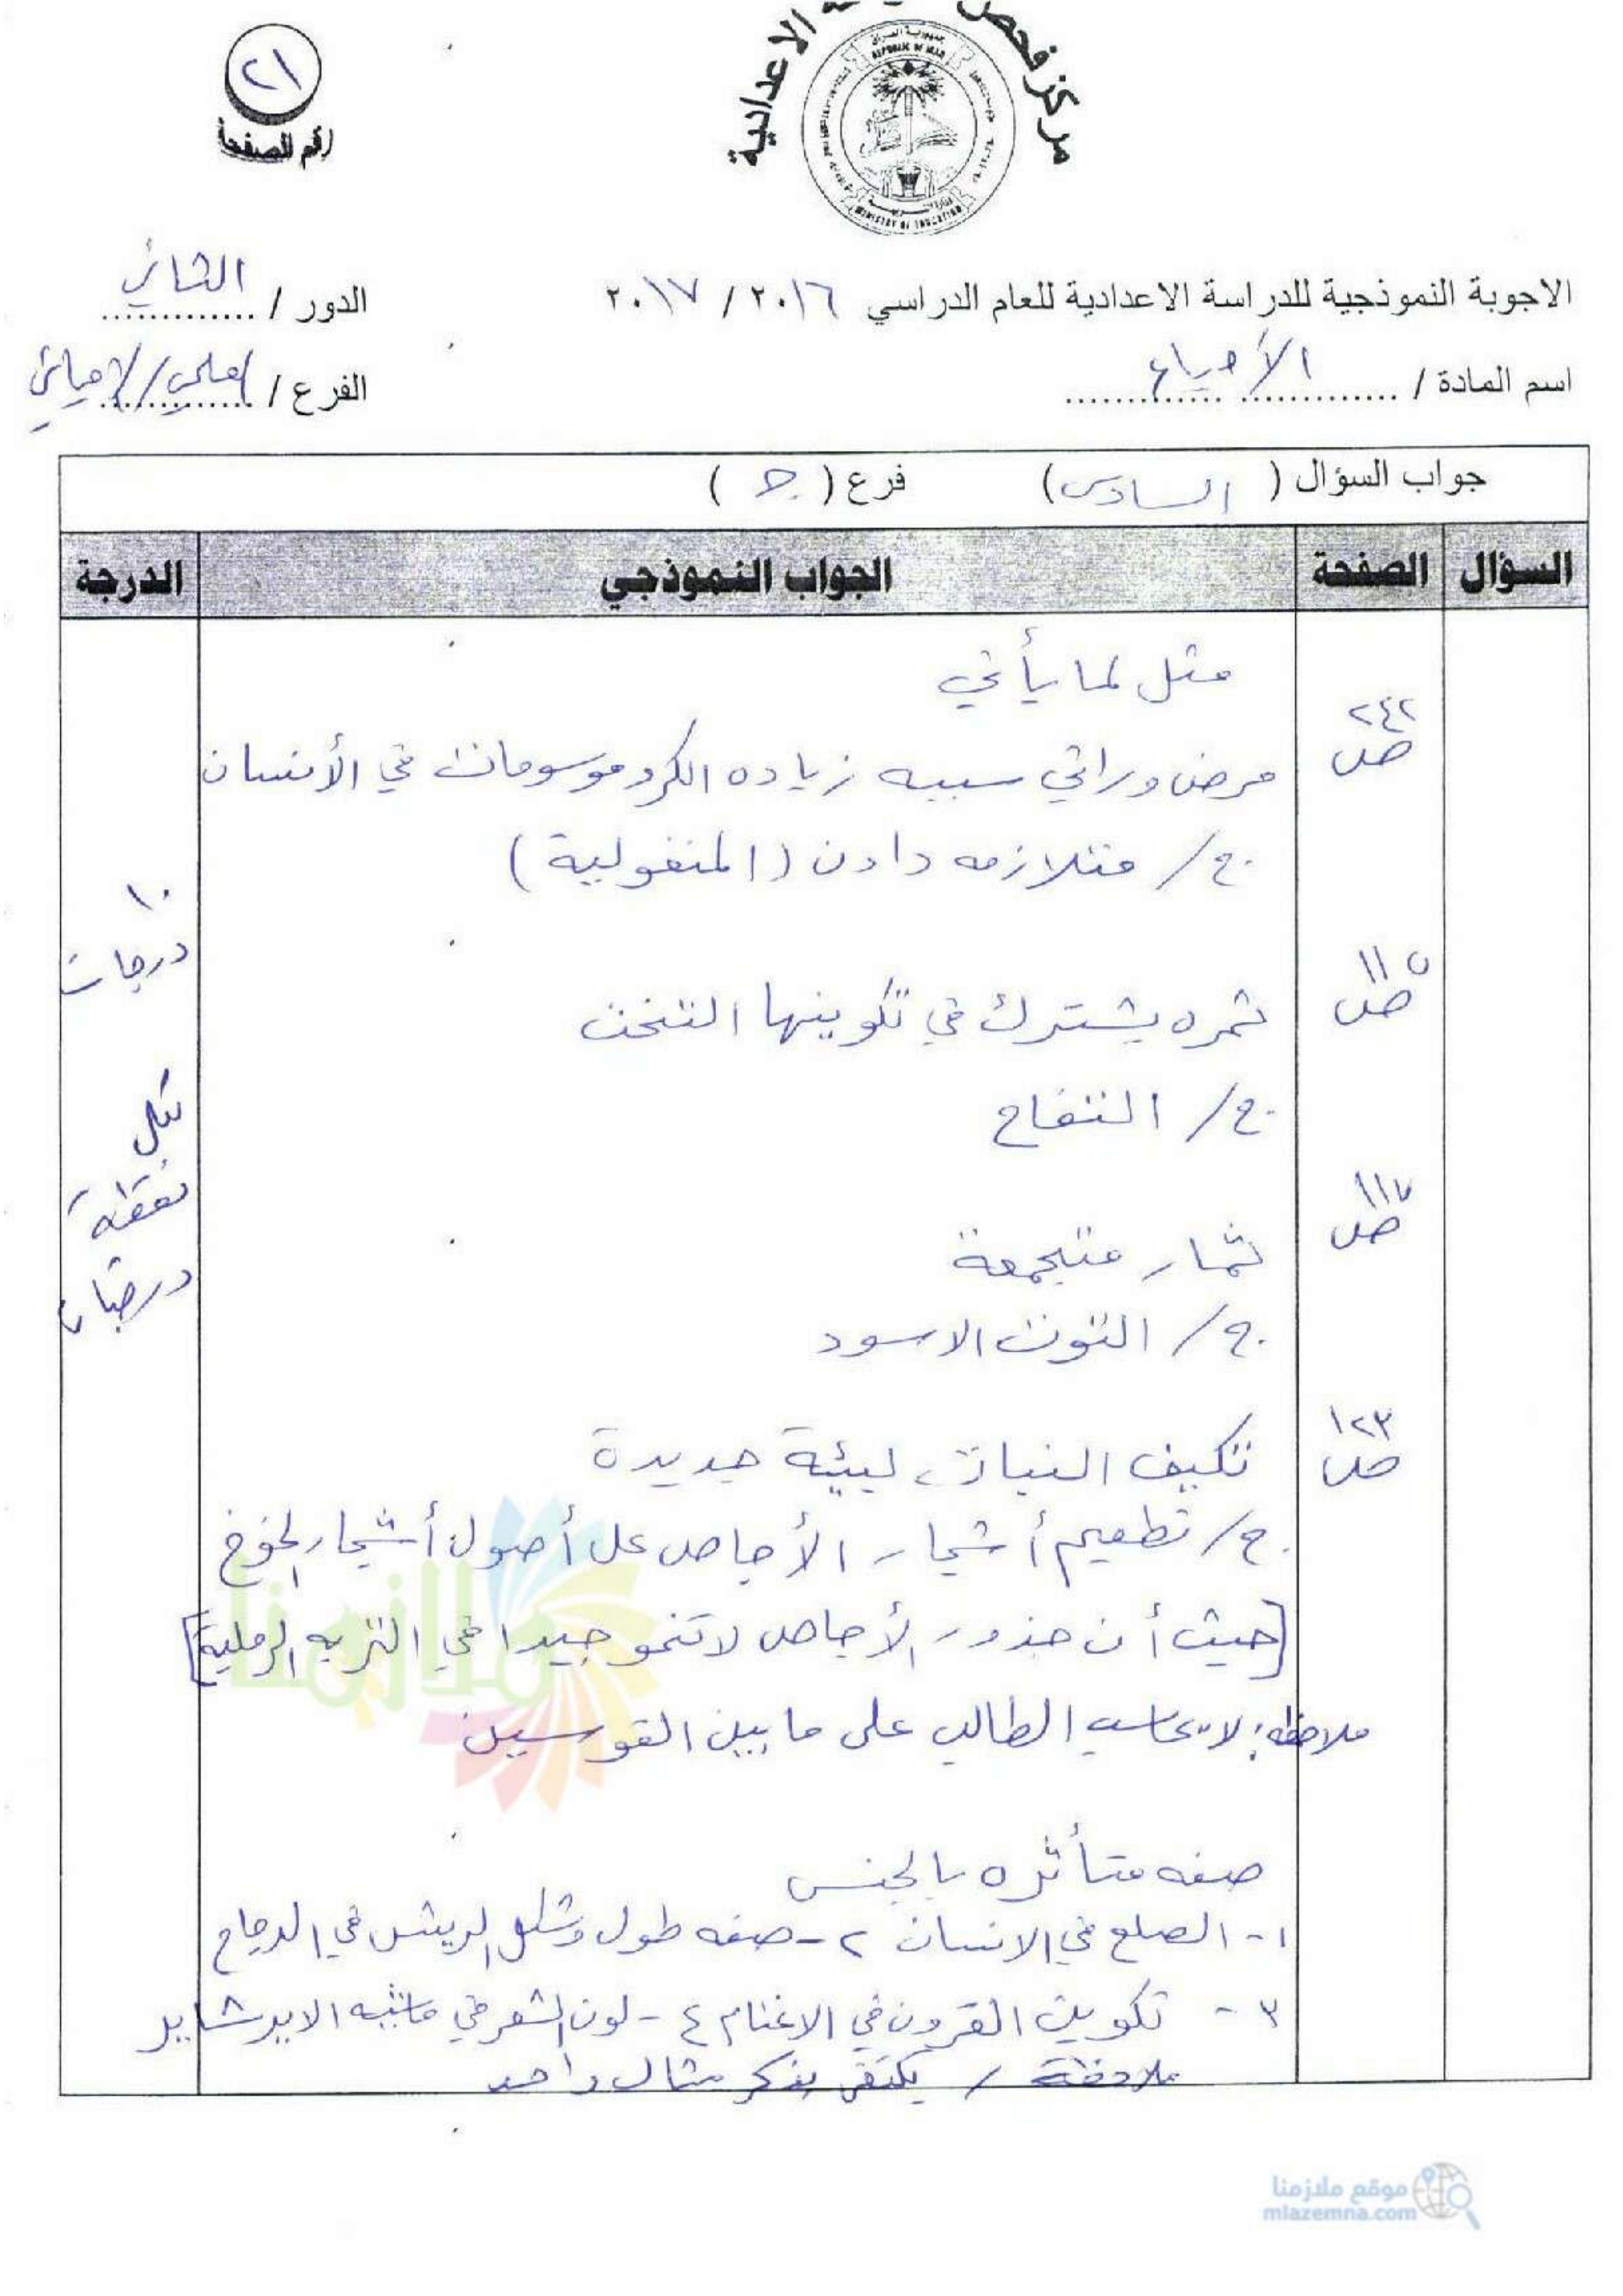 مركز فحص الاعدادية
جمهورية العراق
REPUBLIC OF IRAQ
MINISTRY OF EDUCATION
٢١
رقم الصفحة
الاجوبة النموذجية للدراسة الاعدادية للعام الدراسي ٢٠١٦ / ٢٠١٧
الدور / الثاني
اسم المادة / الأحياء
الفرع / العلمي/الاحيائي
جواب السؤال ( السادس ) فرع ( ج )
السؤال الصفحة الجواب النموذجي الدرجة
مثل لما يأتي
ص ٢٤٢
مرض وراثي سببه زياده الكروموسومات في الأنسان
ج/ متلازمه داون (المنغولية)
١٠
درجات
ص ١١٥
ثمره يشترك في تكوينها التخت
ج/ التفاح
لكل
نقطة
درجتان
ص ١١٧
ثمار متجمعة
ج/ التوت الاسود
ص ١٢٣
تكييف النبات لبيئة جديدة
ج/ تطعيم أشجار الأجاص على أصول أشجار الخوخ
[حيث أن جذور الأجاص لا تنمو جيدا في التربه الرملية]
ملاحظه: لا يحاسب الطالب على ما بين القوسين
صفه متأثره بالجنس
١- الصلع في الانسان ٢- صفه طول وشكل الريش في الدجاج
٣- تكوين القرون في الاغنام ٤- لون الشعر في ماشيه الايرشاير
ملاحظة / يكتفى بذكر مثال واحد
ملازمنا
موقع ملازمنا
mlazemna.com